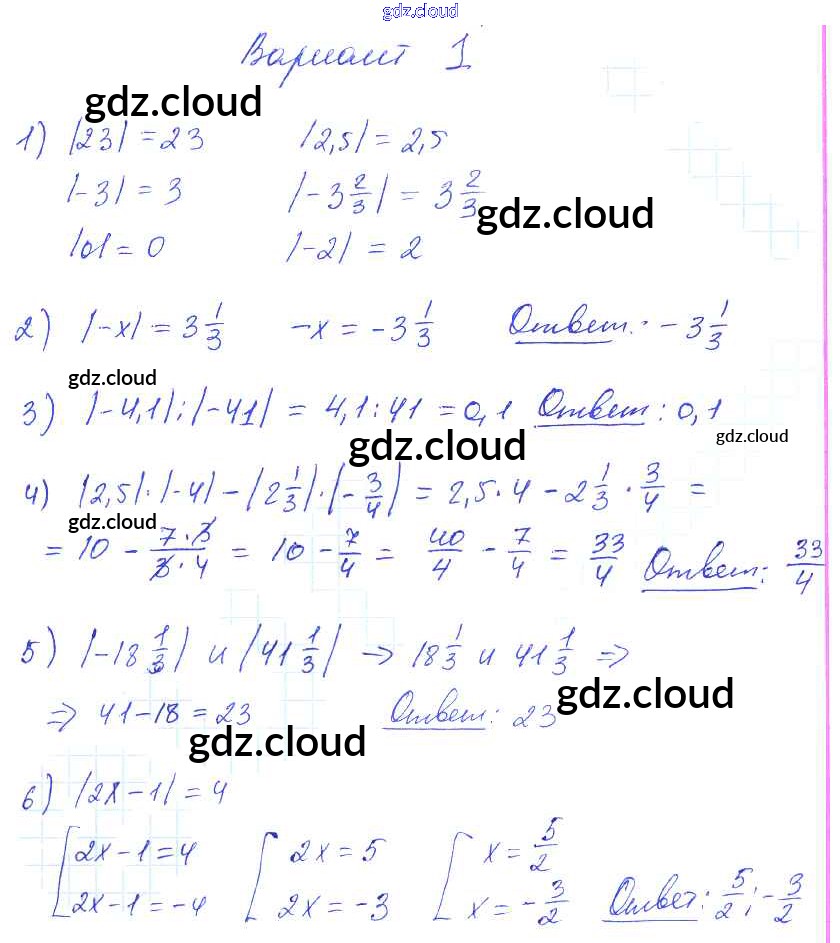 gdz.cloud
Вариант 1
gdz.cloud
1) |23| = 23 |2,5| = 2,5
|-3| = 3 |-3 2/3| = 3 2/3
gdz.cloud
|0| = 0 |-2| = 2
2) |-x| = 3 1/3 -x = -3 1/3 Ответ: -3 1/3
gdz.cloud
3) |-4,1| : |-41| = 4,1 : 41 = 0,1 Ответ: 0,1
gdz.cloud gdz.cloud
4) |2,5| · |-4| - |2 1/3| · |-3/4| = 2,5 · 4 - 2 1/3 · 3/4 =
gdz.cloud
= 10 - 7·3/3·4 = 10 - 7/4 = 40/4 - 7/4 = 33/4 Ответ: 33/4
5) |-18 1/3| и |41 1/3| → 18 1/3 и 41 1/3 ⇒
⇒ 41 - 18 = 23 Ответ: 23
gdz.cloud
gdz.cloud
6) |2x - 1| = 4
[2x - 1 = 4 [2x = 5 [x = 5/2
2x - 1 = -4 2x = -3 x = -3/2 Ответ: 5/2; -3/2